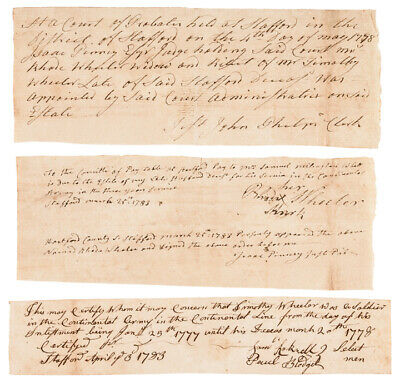 At a Court of Probate held at Stafford in the
District of Stafford on the 4th Day of may 1778
Isaac Pinney Esqr Judge holding Said Court mrs
Rhode Wheeler Widow and Relict of mr Timothy
Wheeler Late of Said Stafford Deceasd Was
appointed by Said Court Administratrix on said
Estate
Test John Phelps Clerk
To the Committe of Pay table at Hartford Pay to mr Samuel
is due to the Estate of my Late Husband for his Service in the Continental
Army in the three years Service
Stafford march 25th 1783
her
Rhoda Wheeler
mark
Hartford County Ss Stafford march 26th 1783 Personly appeared the above
Named Rhoda Wheeler and Signed the above order before me
Isaac Pinney Just Pes
This may Certify Whom it may Concern that Timothy Wheeler was a Soldier
in the Continental Army in the Continental Line from the day of his
Inlistment being Jany 25th 1777 until his Decess march 20th 1778
Certified Pr
Stafford April ye 8 1783
Saml
Paul Blodget
Select
men